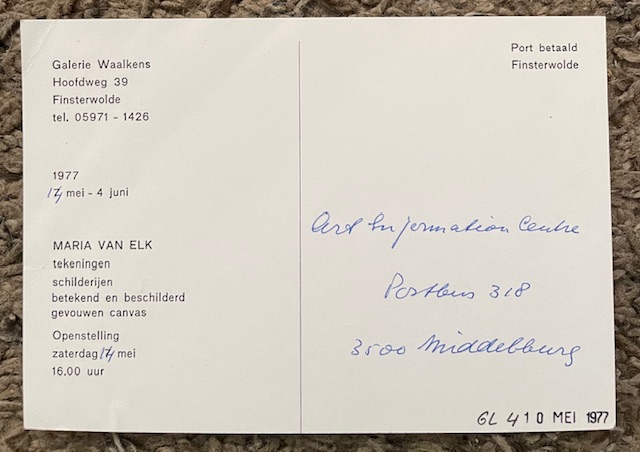 Galerie Waalkens
Hoofdweg 39
Finsterwolde
tel. 05971 - 1426
1977
mei - 4 juni
MARIA VAN ELK
tekeningen
schilderijen
betekend en beschilderd
gevouwen canvas
Openstelling
zaterdag mei
16.00 uur
Port betaald
Finsterwolde
Art Information Centre
Postbus 318
3500 Middelburg
GL 4 10 MEI 1977